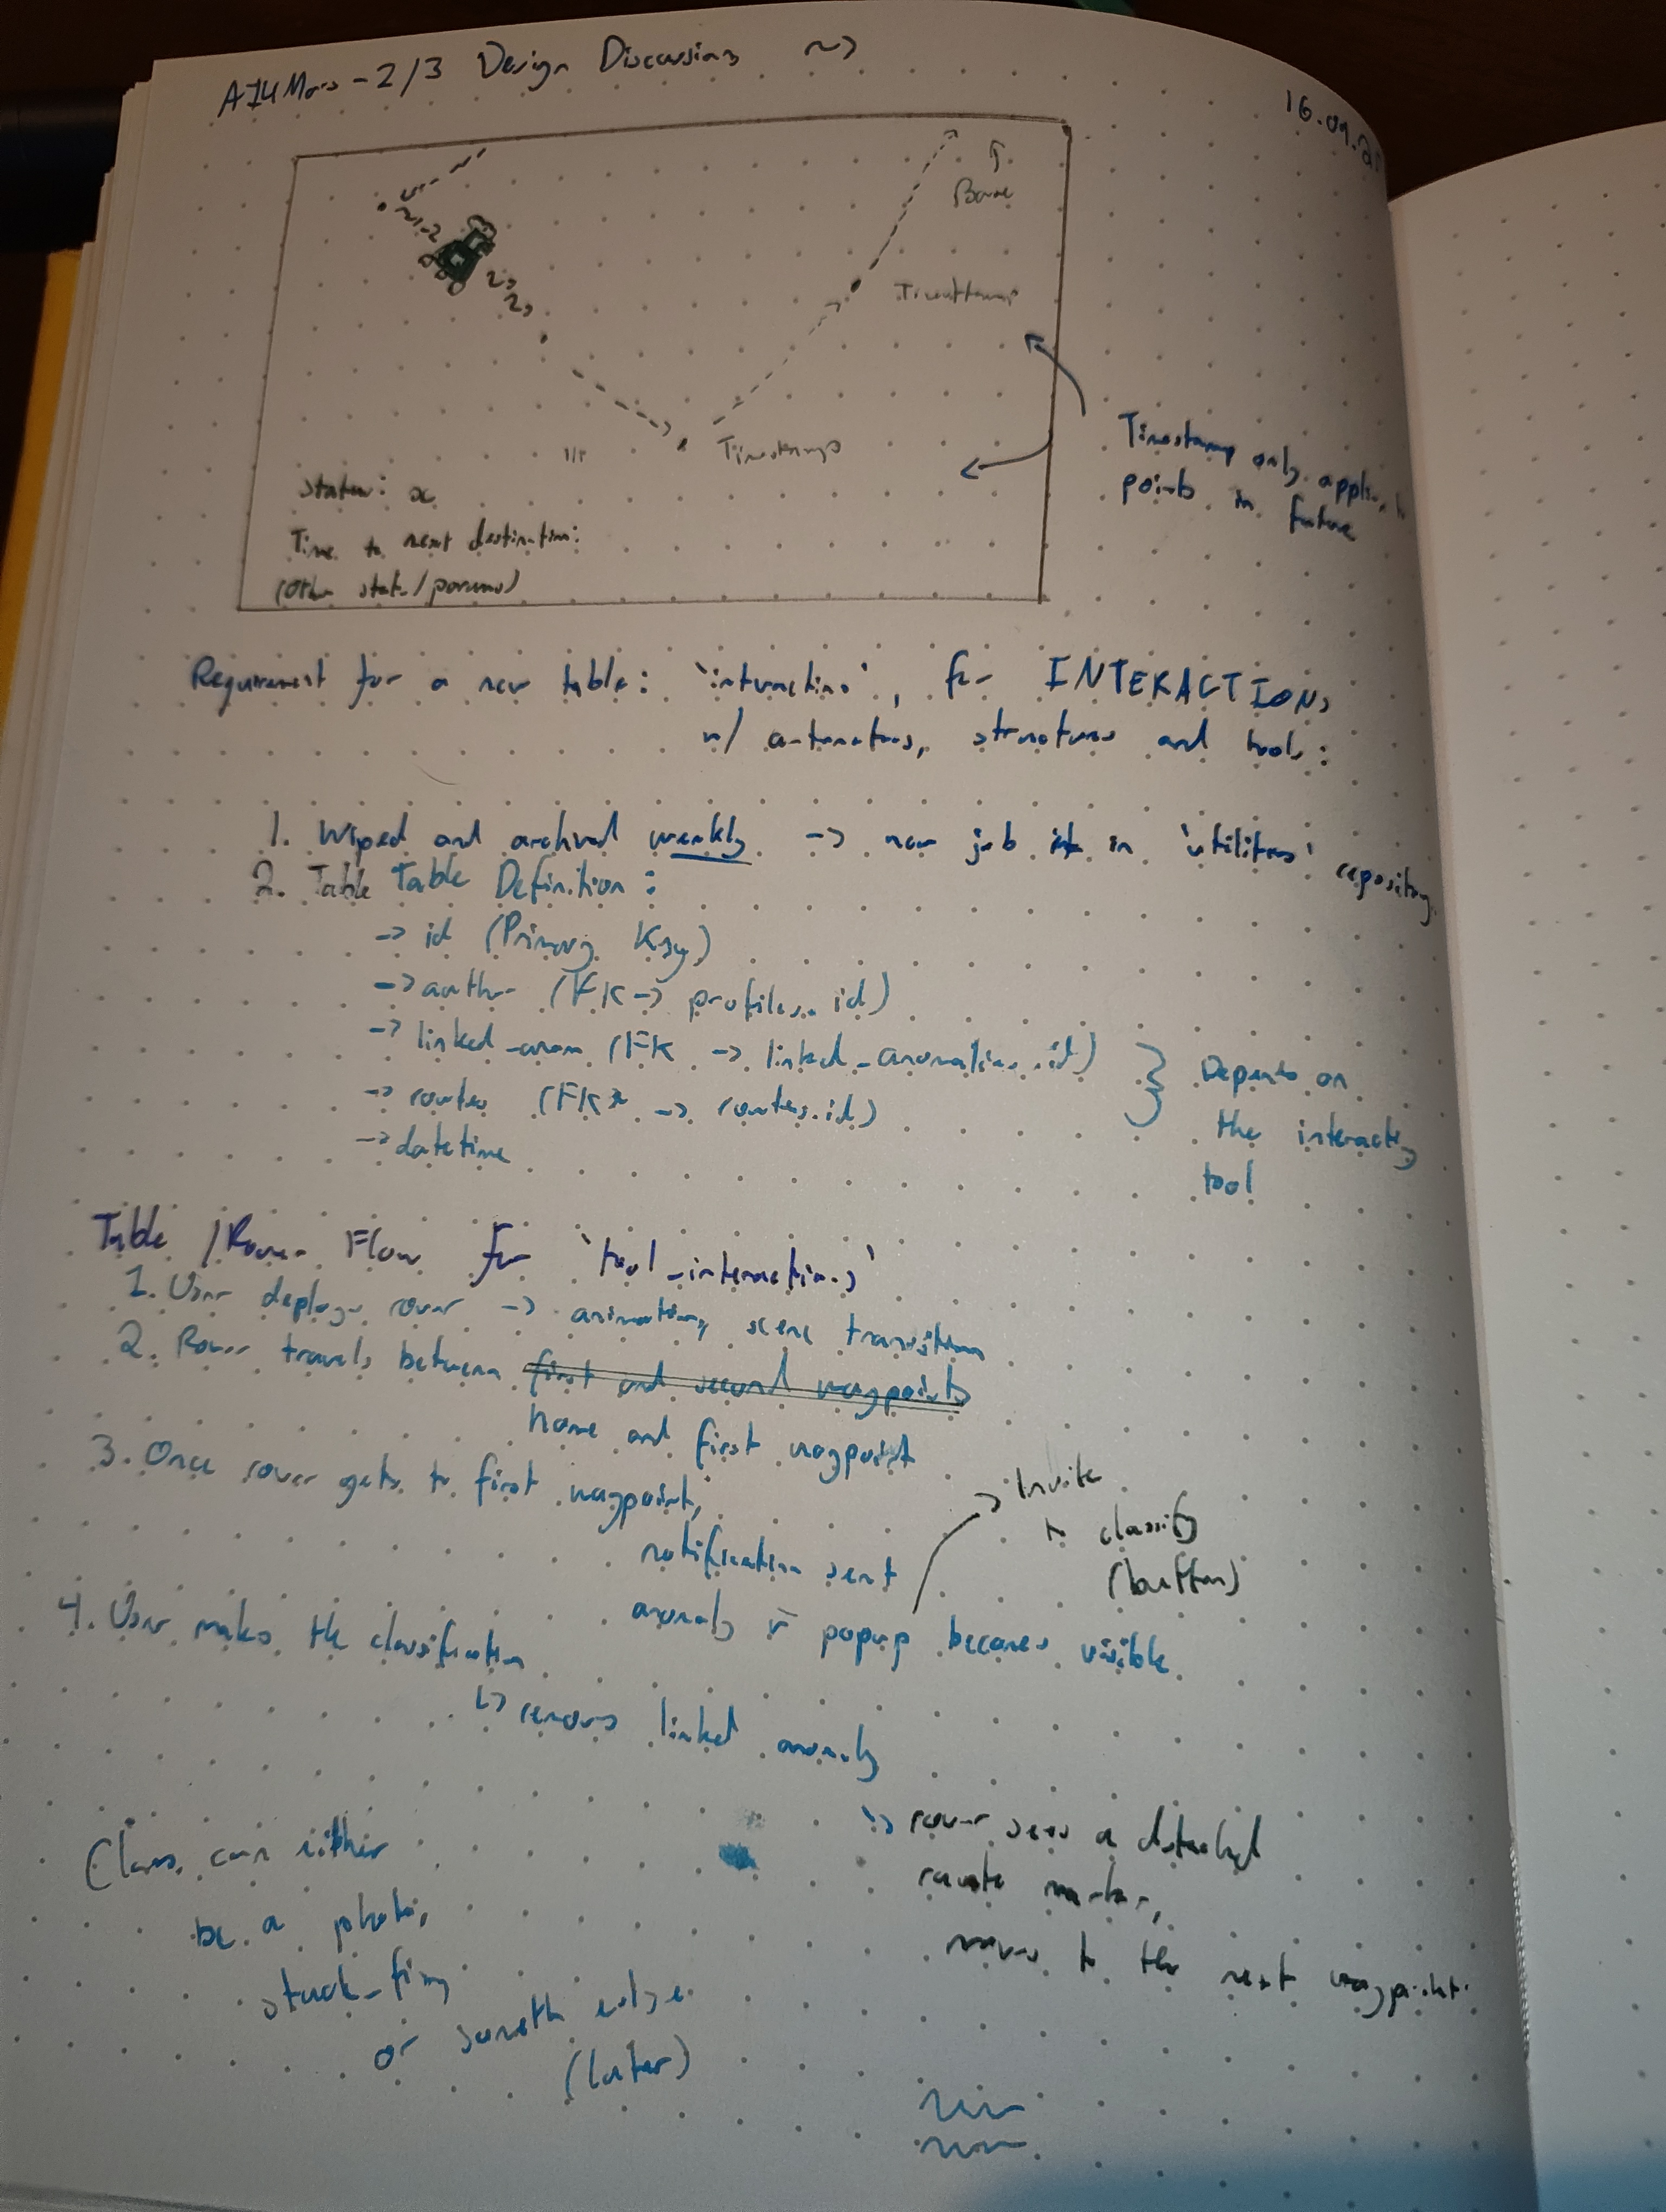 AI4Mars - 2/3 Design Discussions ~>
16.09.25
Base
Timestamp
Timestamp
Status: x
Time to next destination:
(Other stats/params)
Timestamp only applies to
points in future
Requirement for a new table: 'interactions', for INTERACTIONS
w/ automatons, structures and tools:
1. Wiped and archived weekly -> new job in 'utilities' repository
2. Table Table Definition:
-> id (Primary Key)
-> author (FK -> profiles.id)
-> linked_anom (FK -> linked_anomalies.id)
-> routes (FK* -> routes.id)
-> datetime
} Depends on
the interacting
tool
Table / Rover Flow for 'tool_interactions'
1. User deploys rover -> animation, scene transition
2. Rover travels between first and second waypoints
home and first waypoint
3. Once rover gets to first waypoint,
notification sent
anomaly popup becomes visible
-> Invite
to classify
(button)
4. User makes the classification
↳ removes linked anomaly
↳ rover sees a detached
route marker,
moves to the next waypoint.
Class. can either
be a photo,
stuck-fix,
or someth else
(later)